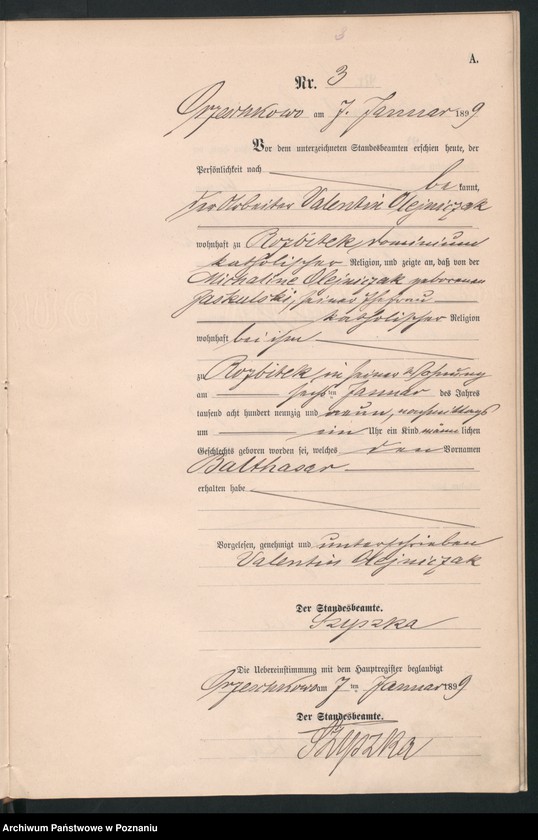 A.
Nr. 3
Orzeschkowo am 7. Januar 1899
Vor dem unterzeichneten Standesbeamten erschien heute, der
Persönlichkeit nach
be kannt,
der Arbeiter Valentin Olejniczak
wohnhaft zu Rozbitek, dominium
katholischer Religion, und zeigte an, daß von der
Michaline Olejniczak geborenen
Jaskulski, seiner Ehefrau
katholischer Religion
wohnhaft bei ihm
zu Rozbitek in seiner Wohnung
am sechsten Januar des Jahres
tausend acht hundert neunzig und neun, nachmittags
um ein Uhr ein Kind männlichen
Geschlechts geboren worden sei, welches den Vornamen
Balthasar
erhalten habe
Vorgelesen, genehmigt und unterschrieben
Valentin Olejniczak
Der Standesbeamte.
Szyszka
Die Uebereinstimmung mit dem Hauptregister beglaubigt
Orzeschkowo am 7ten Januar 1899
Der Standesbeamte.
Szyszka
Archiwum Państwowe w Poznaniu